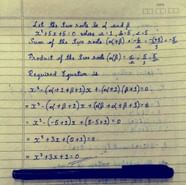 Let the two roots be α and β
x²+5x+5=0 where a=1, b=5, c=5
Sum of the two roots (α+β) = -b/a = -(+5)/1 = -5
Product of the two roots (αβ) = c/a = 5/1
Required Equation is
x² - (α+1+β+1)x + (α+1)(β+1) = 0
= x² - (α+β+2)x + (αβ+α+β+1) = 0
= x² - (-5+2)x + (5-5+1) = 0
= x² + 3x + (0+1) = 0
= x² + 3x + 1 = 0